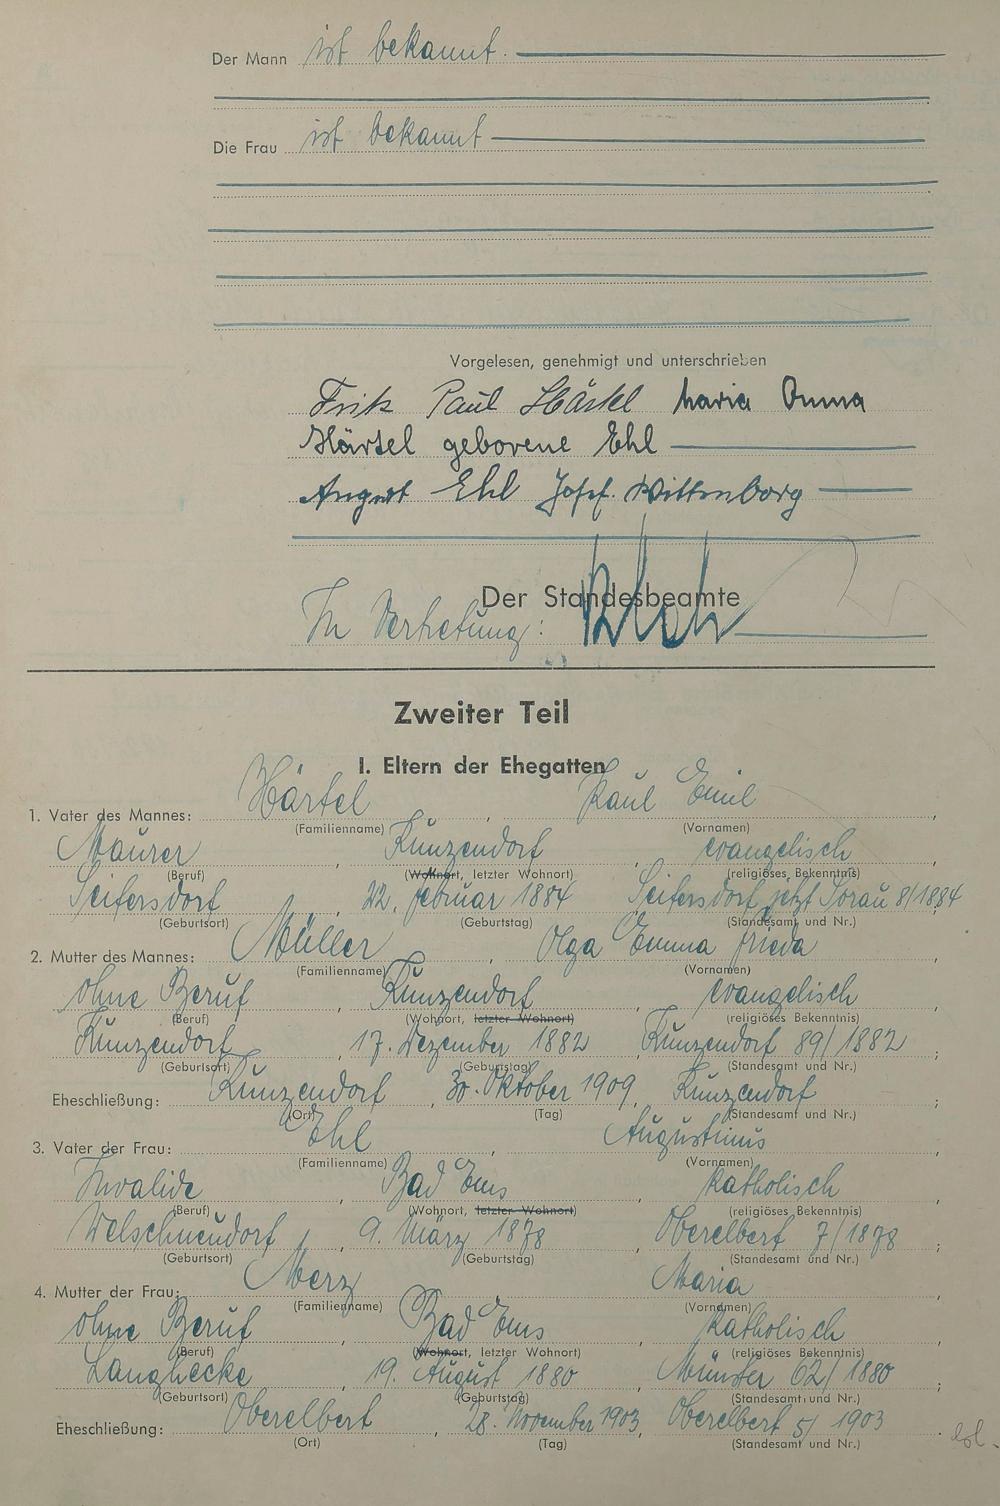 Der Mann ist bekannt.
Die Frau ist bekannt
Vorgelesen, genehmigt und unterschrieben
Fritz Paul Härtel Maria Anna
Härtel geborene Ehl
August Ehl Josef Wittenborg
Der Standesbeamte
In Vertretung:
Zweiter Teil
I. Eltern der Ehegatten
1. Vater des Mannes: Härtel, Paul Emil,
(Familienname) (Vornamen)
Maurer, Kunzendorf, evangelisch,
(Beruf) (Wohnort, letzter Wohnort) (religiöses Bekenntnis)
Seifersdorf, 22. Februar 1884 Seifersdorf, jetzt Sorau 8/1884;
(Geburtsort) (Geburtstag) (Standesamt und Nr.)
2. Mutter des Mannes: Müller, Olga Emma Frieda,
(Familienname) (Vornamen)
ohne Beruf, Kunzendorf, evangelisch,
(Beruf) (Wohnort, letzter Wohnort) (religiöses Bekenntnis)
Kunzendorf, 17. Dezember 1882, Kunzendorf 89/1882;
(Geburtsort) (Geburtstag) (Standesamt und Nr.)
Eheschließung: Kunzendorf, 30. Oktober 1909, Kunzendorf;
(Ort) (Tag) (Standesamt und Nr.)
3. Vater der Frau: Ehl, Augustinus,
(Familienname) (Vornamen)
Invalide, Bad Ems, katholisch,
(Beruf) (Wohnort, letzter Wohnort) (religiöses Bekenntnis)
Welschneudorf, 9. März 1878, Oberelbert 7/1878;
(Geburtsort) (Geburtstag) (Standesamt und Nr.)
4. Mutter der Frau: Merz, Maria,
(Familienname) (Vornamen)
ohne Beruf, Bad Ems, katholisch,
(Beruf) (Wohnort, letzter Wohnort) (religiöses Bekenntnis)
Langhecke, 19. August 1880, Münster 62/1880;
(Geburtsort) (Geburtstag) (Standesamt und Nr.)
Eheschließung: Oberelbert, 28. November 1903, Oberelbert 5/1903.
(Ort) (Tag) (Standesamt und Nr.)